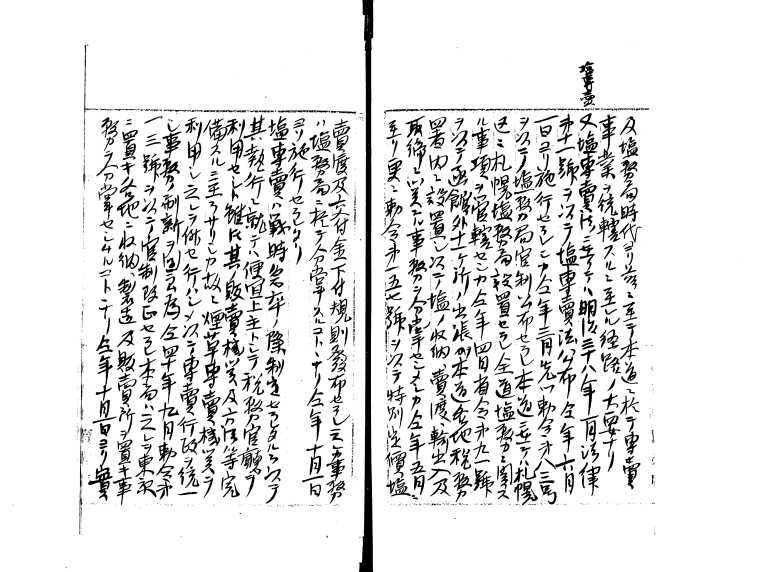 塩専売
及塩務局時代ヨリ茲ニ至テ本道ニ於テ専賣
事業ヲ統轄スルニ至レル経路ノ大要ナリ
又塩専賣法ニ至テハ明治三十八年一月法律
第十一號ヲ以テ塩専賣法公布仝年六月
一日ヨリ施行セラレシカ仝年三月先ツ勅令第八三号
ヲ以テ塩務局官制公布セラレ本道ニ至テハ札幌
区ニ札幌塩務局設置セラレ全道塩務ニ関ス
ル事項ヲ管轄セシカ仝年四月省令第九一號
ヲ以テ函館外十一ケ所ノ出張所本道各地税務
署内ニ設置シ以テ塩ノ収納賣渡輸出入及
取締ニ関スル事務ヲ分掌セシメシカ仝年五月ニ
至リ更ニ勅令第一五七號ヲ以テ特別定價塩
賣渡及交付金下付規則発布セラレ之カ事務
ハ塩務局ニ於テ分掌スルコトトナリ仝年十月一日
ヨリ施行セラレタリ
塩専賣ハ戦時倉卒ノ際制定セラレタルヲ以テ
其ノ執行ニ就テハ便宜上主トシテ税務官廳ヲ
利用セシト雖トモ其ノ販賣機関及方法等完
備スルニ至ラサリシカ故ニ煙草専賣機関ヲ
利用シ之レヲ併セ行ハシメ以テ専賣行政ヲ統一
シ事務ノ刷新ヲ図ランカ為仝四十年九月勅令第
一三號ヲ以テ官制改正セラレ本局ハ之レヲ東京
ニ置キ各地ニ収納、製造及販賣所ヲ置キ事
務ヲ分掌セシムルコトトナリ仝年十月一日ヨリ實